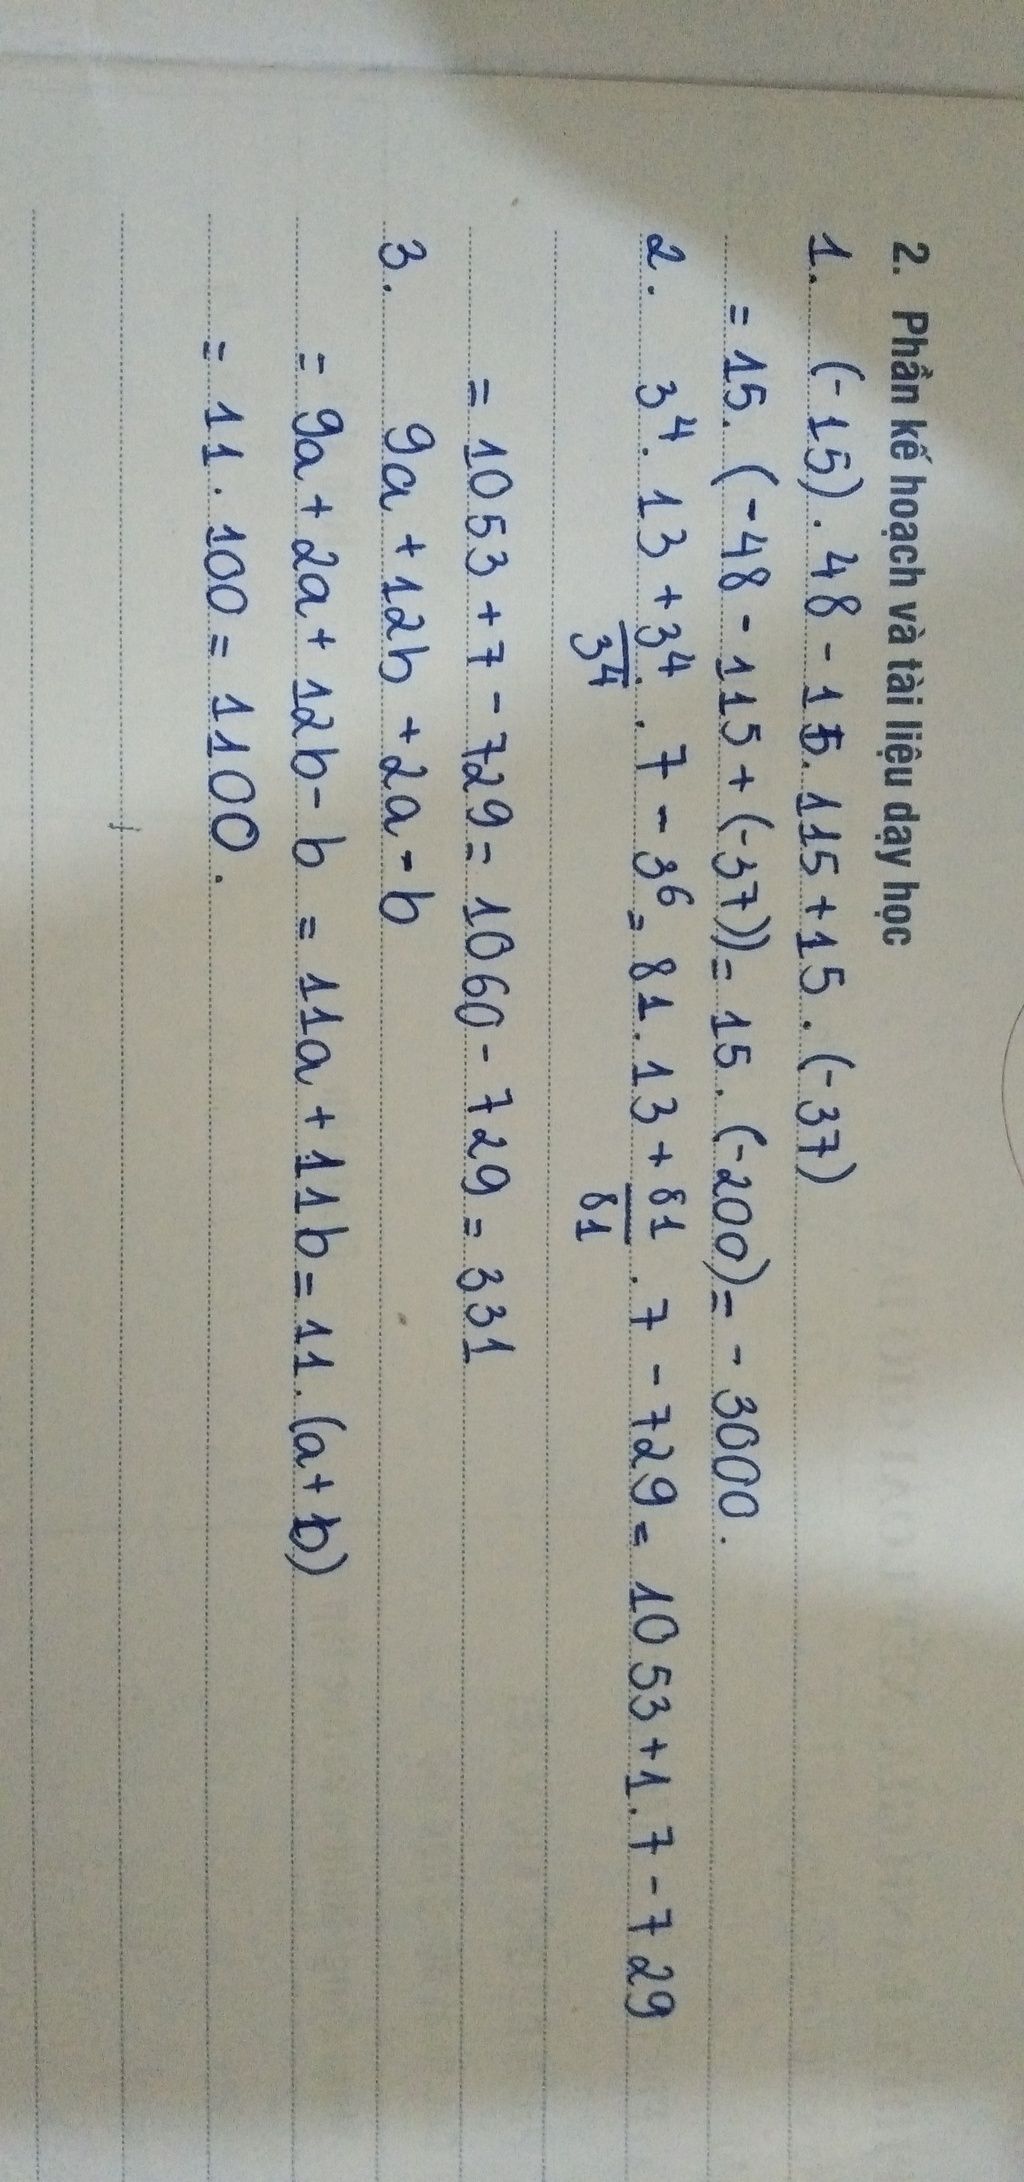 2. Phần kế hoạch và tài liệu dạy học
1. (-15). 48 - 15. 115 + 15. (-37)
= 15. (-48 - 115 + (-37)) = 15. (-200) = - 3000.
2. 3⁴. 13 + 3⁴/3⁴ . 7 - 3⁶ = 81. 13 + 81/81 . 7 - 729 = 1053 + 1. 7 - 729
= 1053 + 7 - 729 = 1060 - 729 = 331
3. 9a + 12b + 2a - b
= 9a + 2a + 12b - b = 11a + 11b = 11. (a + b)
= 11. 100 = 1100.